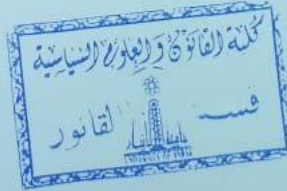 كلية القانون والعلوم السياسية
قسم القانون